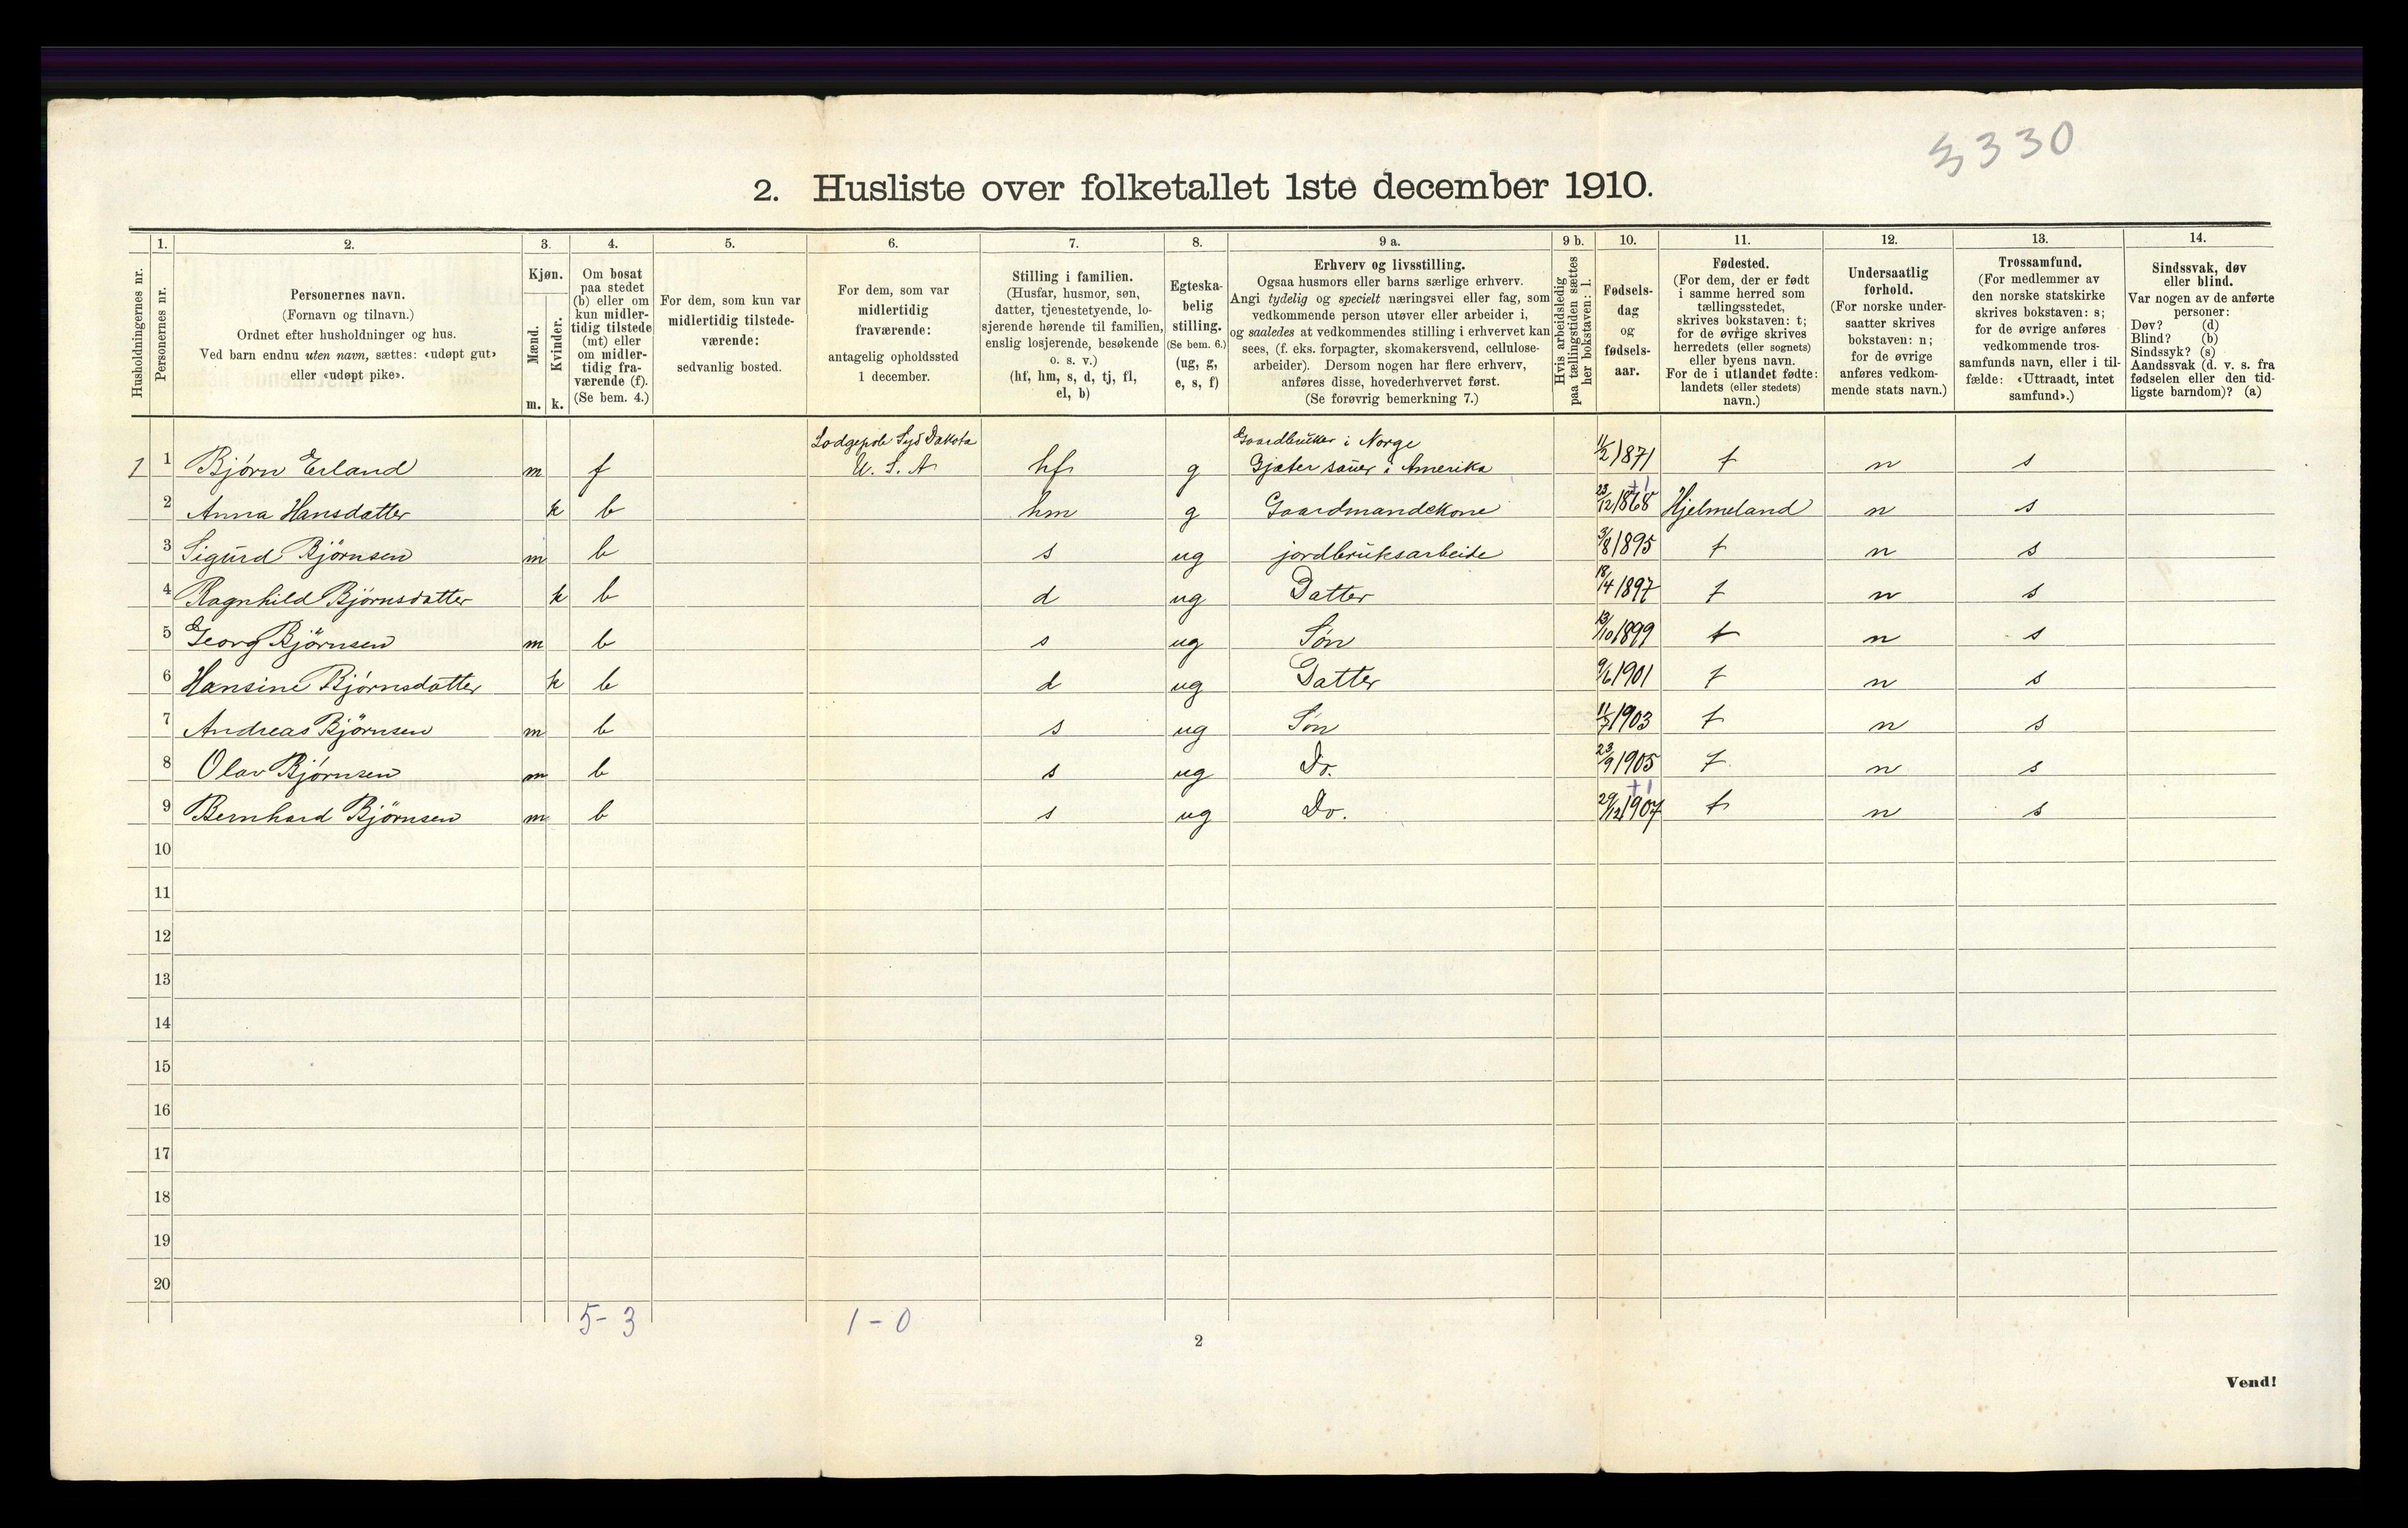 3330
2. Husliste over folketallet 1ste december 1910.
Husholdningernes nr.
1.
Personernes nr.
2.
Personernes navn.
(Fornavn og tilnavn.)
Ordnet efter husholdninger og hus.
Ved barn endnu uten navn, sættes: «udøpt gut»
eller «udøpt pike».
3.
Kjøn.
Mænd.
Kvinder.
m. k.
4.
Om bosat
paa stedet
(b) eller om
kun midler-
tidig tilstede
(mt) eller
om midler-
tidig fra-
værende (f).
(Se bem. 4.)
5.
For dem, som kun var
midlertidig tilstede-
værende:
sedvanlig bosted.
6.
For dem, som var
midlertidig
fraværende:
antagelig opholdssted
1 december.
7.
Stilling i familien.
(Husfar, husmor, søn,
datter, tjenestetyende, lo-
sjerende hørende til familien,
enslig losjerende, besøkende
o. s. v.)
(hf, hm, s, d, tj, fl,
el, b)
8.
Egteska-
belig
stilling.
(Se bem. 6.)
(ug, g,
e, s, f)
9 a.
Erhverv og livsstilling.
Ogsaa husmors eller barns særlige erhverv.
Angi tydelig og specielt næringsvei eller fag, som
vedkommende person utøver eller arbeider i,
og saaledes at vedkommendes stilling i erhvervet kan
sees, (f. eks. forpagter, skomakersvend, cellulose-
arbeider). Dersom nogen har flere erhverv,
anføres disse, hovederhvervet først.
(Se forøvrig bemerkning 7.)
9 b.
Hvis arbeidsledig
paa tællingstiden sættes
her bokstaven: l.
10.
Fødsels-
dag
og
fødsels-
aar.
11.
Fødested.
(For dem, der er født
i samme herred som
tællingsstedet,
skrives bokstaven: t;
for de øvrige skrives
herredets (eller sognets)
eller byens navn.
For de i utlandet fødte:
landets (eller stedets)
navn.)
12.
Undersaatlig
forhold.
(For norske under-
saatter skrives
bokstaven: n;
for de øvrige
anføres vedkom-
mende stats navn.)
13.
Trossamfund.
(For medlemmer av
den norske statskirke
skrives bokstaven: s;
for de øvrige anføres
vedkommende tros-
samfunds navn, eller i til-
fælde: «Uttraadt, intet
samfund».)
14.
Sindssvak, døv
eller blind.
Var nogen av de anførte
personer:
Døv? (d)
Blind? (b)
Sindssyk? (s)
Aandssvak (d. v. s. fra
fødselen eller den tid-
ligste barndom)? (a)
Lodgepole Syd Dakota Gaardbruker i Norge
1 1 Bjørn Erland m f U. S. A hf g Gjæter sauer i Amerika 11/2 1871 t n s
+1
2 Anna Hansdatter k b hm g Gaardmandskone 23/12 1868 Hjelmeland n s
3 Sigurd Bjørnsen m b s ug jordbruksarbeide 3/8 1895 t n s
4 Ragnhild Bjørnsdatter k b d ug Datter 18/4 1897 t n s
5 Georg Bjørnsen m b s ug Søn 13/10 1899 t n s
6 Hansine Bjørnsdatter k b d ug Datter 9/6 1901 t n s
7 Andreas Bjørnsen m b s ug Søn 11/7 1903 t n s
8 Olav Bjørnsen m b s ug Do. 23/9 1905 t n s
+1
9 Bernhard Bjørnsen m b s ug Do. 29/12 1907 t n s
10
11
12
13
14
15
16
17
18
19
20
5-3 1-0
2
Vend!